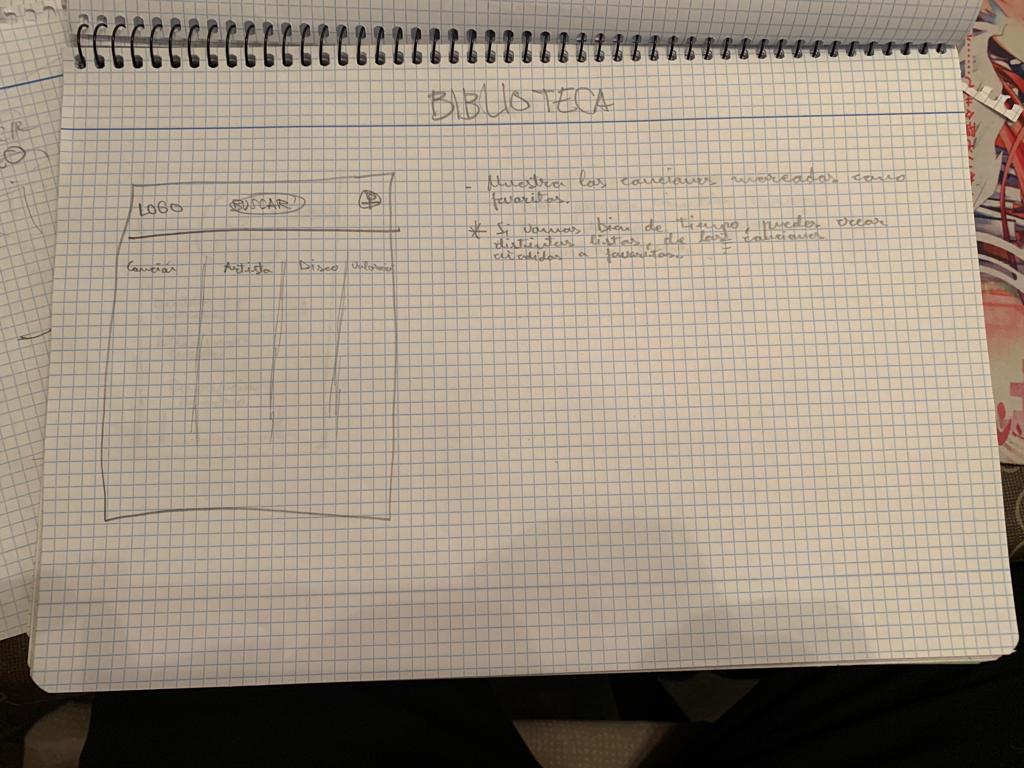 BIBLIOTECA
LOGO BUSCAR
Canción Artista Disco Valoración
- Muestra las canciones marcadas como
favoritas.
* Si vamos bien de tiempo, puedes crear
distintas listas, de las canciones
añadidas a favoritas.